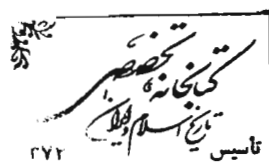 کتابخانه تخصصی
تاریخ اسلام و ایران
تأسیس ۳۷۲